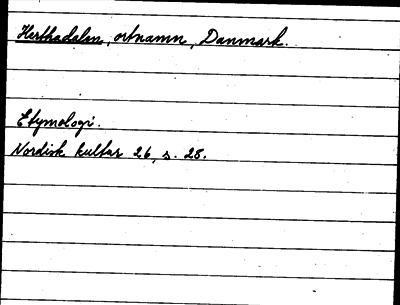 Herthadalen, ortnamn, Danmark.
Etymologi.
Nordisk kultur 26, s. 28.